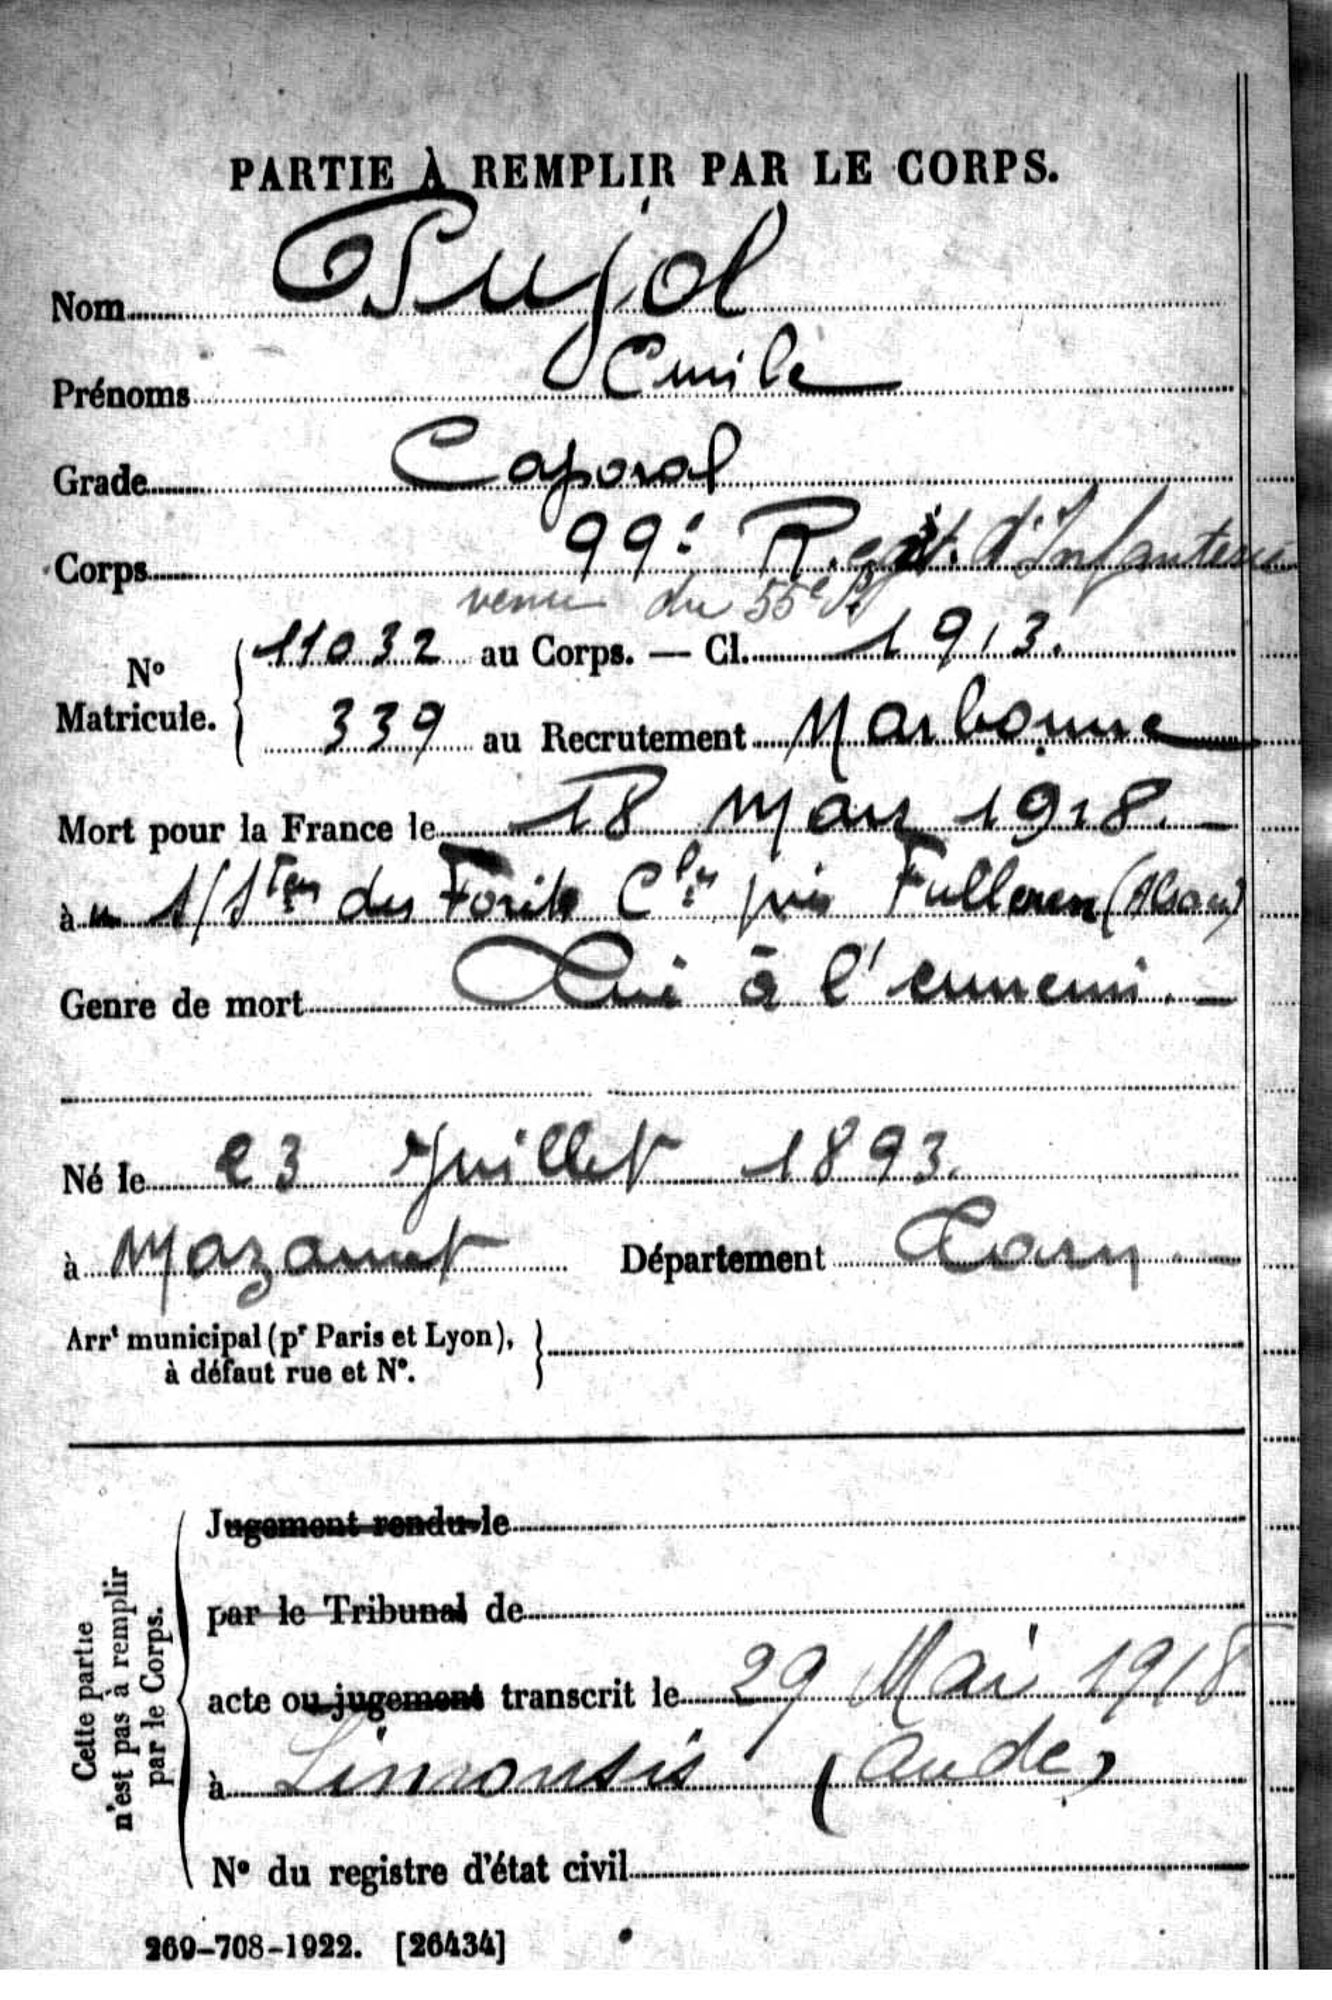 PARTIE À REMPLIR PAR LE CORPS.
Nom Pujol
Prénoms Emile
Grade Caporal
Corps 99e Regt. d'Infanterie
venu du 55e
Nº Matricule. 11032 au Corps. — Cl. 1913.
339 au Recrutement Narbonne
Mort pour la France le 18 Mars 1918. —
à des Forêts près Fulleren (Alsace)
Genre de mort Tué à l'ennemi. —
Né le 23 Juillet 1893.
à Mazamet Département Tarn
Arrt municipal (pr Paris et Lyon),
à défaut rue et Nº.
Cette partie
n'est pas à remplir
par le Corps.
Jugement rendu le
par le Tribunal de
acte ou jugement transcrit le 29 Mai 1918
à Limousis (Aude)
Nº du registre d'état civil
269-708-1922. [26434]